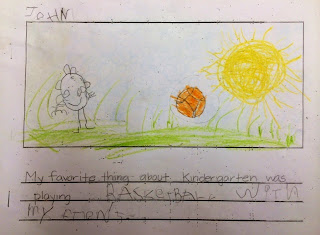 JOHN
My favorite thing about Kindergarten was
playing BASKETBAL WITH
MY